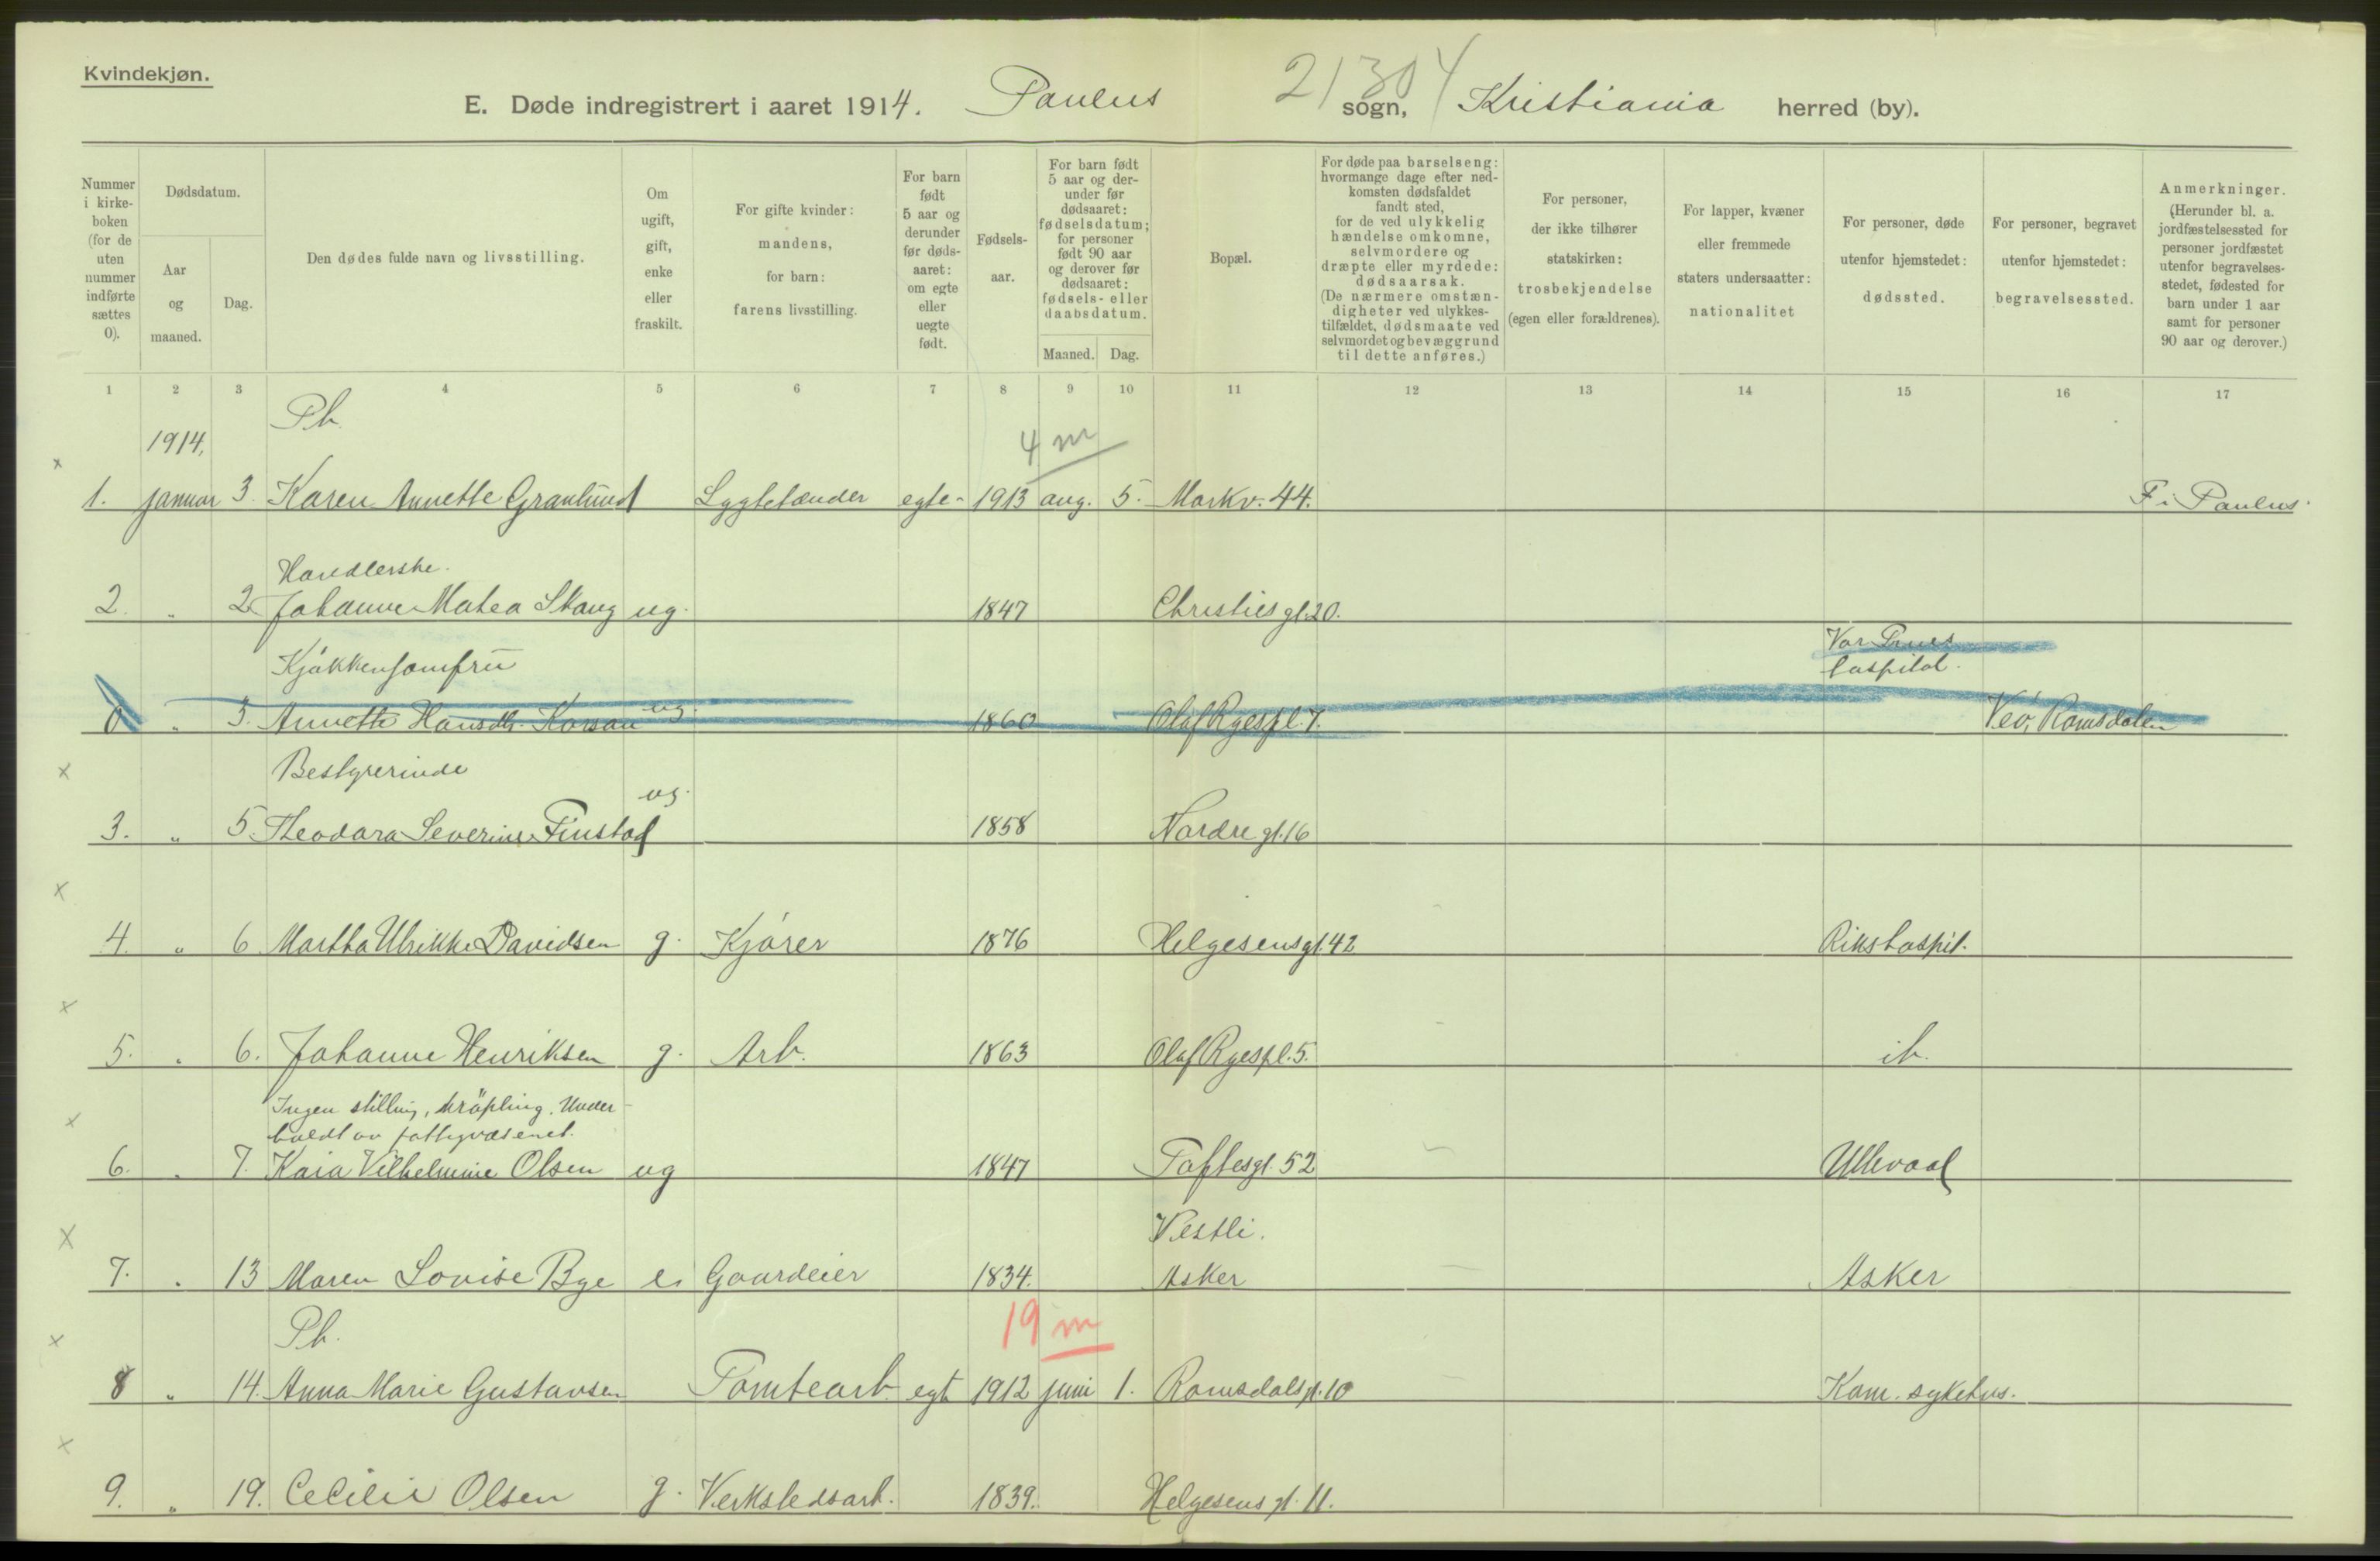 Kvindekjøn.
21304
E. Døde indregistrert i aaret 1914. Paulus sogn, Kristiania herred (by).
Nummer i kirke-boken (for de uten nummer indførte sættes 0).
Dødsdatum.
Aar og maaned.
Dag.
Den dødes fulde navn og livsstilling.
Om ugift, gift, enke eller fraskilt.
For gifte kvinder: mandens, for barn: farens livsstilling.
For barn født 5 aar og derunder før døds-aaret: om egte eller uegte født.
Fødsels-aar.
For barn født 5 aar og der-under før dødsaaret: fødselsdatum; for personer født 90 aar og derover før dødsaaret: fødsels- eller daabsdatum.
Maaned. Dag.
Bopæl.
For døde paa barselseng: hvormange dage efter ned-komsten dødsfaldet fandt sted, for de ved ulykkelig hændelse omkomne, selvmordere og dræpte eller myrdede: dødsaarsak. (De nærmere omstæn-digheter ved ulykkes-tilfældet, dødsmaate ved selvmordet og bevæggrund til dette anføres.)
For personer, der ikke tilhører statskirken: trosbekjendelse (egen eller forældrenes).
For lapper, kvæner eller fremmede staters undersaatter: nationalitet
For personer, døde utenfor hjemstedet: dødssted.
For personer, begravet utenfor hjemstedet: begravelsessted.
Anmerkninger. (Herunder bl. a. jordfæstelsessted for personer jordfæstet utenfor begravelses-stedet, fødested for barn under 1 aar samt for personer 90 aar og derover.)
1 2 3 4 5 6 7 8 9 10 11 12 13 14 15 16 17
Pb.
1914. 4 m
1. januar 3. Karen Annette Granlund Lygtetænder egte 1913 aug. 5. Markv. 44. F. i Paulus.
Handlerske.
2. " 2. Johanne Matea Skaug ug. 1847 Christies gt. 20.
Kjøkkenjomfru Vor Frues hospital.
0 " 3. Annette Hansdtr. Korsan ug. 1860 Olaf Ryes pl. 7. Veö, Romsdalen
Bestyrerinde
3. " 5. Theodora Severine Finstad ug. 1858 Nordre gt. 16
4. " 6. Martha Ulrikke Davidsen g. Kjører 1876 Helgesens gt. 42 Rikshospit.
5. " 6. Johanne Henriksen g. Arb. 1863 Olaf Ryes pl. 5. ib.
Ingen stilling, krøpling. Under-
holdt av fattigvæsenet.
6. " 7. Kaia Vilhelmine Olsen ug 1847 Toftesgt. 52 Ullevaal
Vestli.
7. " 13 Maren Lovise Bye e. Gaardeier 1834. Asker Asker
Pb. 19 m
8 " 14. Anna Marie Gustavsen Tomtearb. egt. 1912 juni 1. Romsdalsgt. 10 Kom. sykehus.
9. " 19. Cecilie Olsen g. Verkstedsarb. 1839. Helgesens gt. 11.